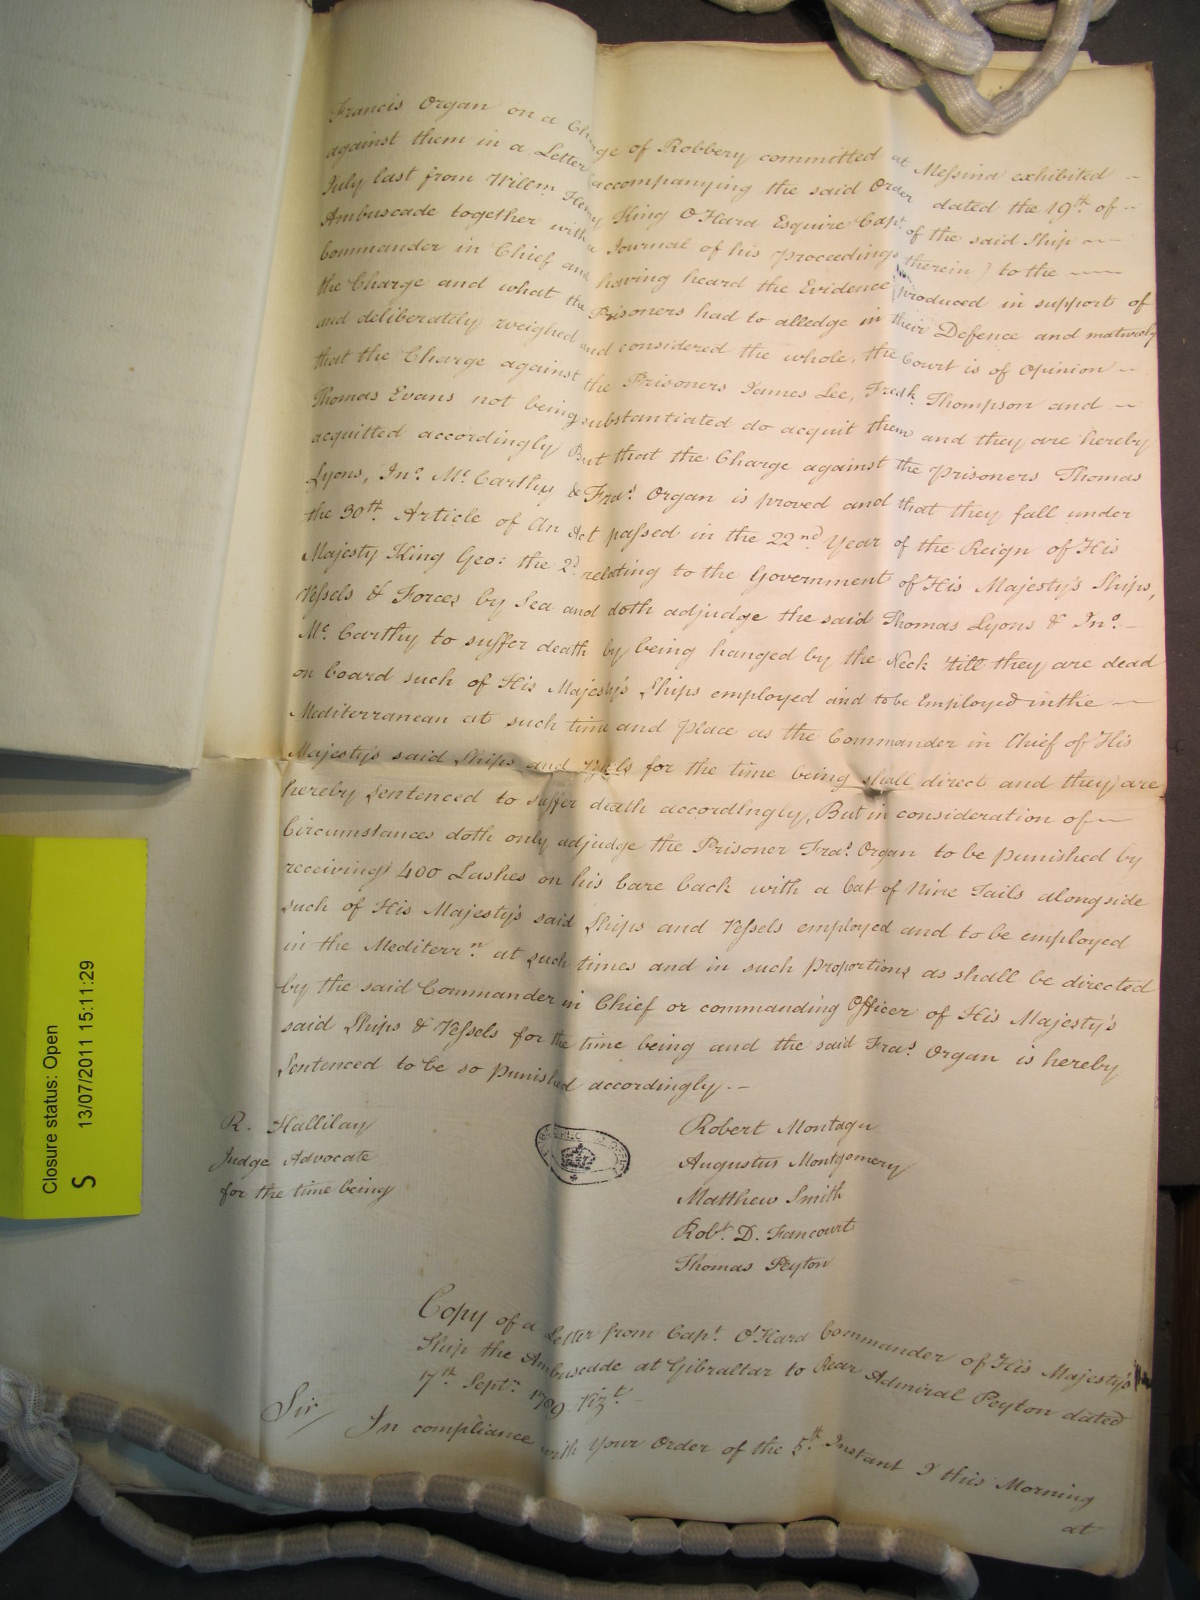 Francis Organ on a Charge of Robbery committed at Messina exhibited
against them in a Letter (accompanying the said Order dated the 19th of
July last from Willm. Henry King O'Hara Esquire Capt. of the said Ship
Ambuscade together with a Journal of his proceedings therein) to the
Commander in Chief and having heard the Evidence produced in support of
the Charge and what the Prisoners had to alledge in their Defence and maturely
and deliberately weighed and considered the whole, the Court is of Opinion
that the Charge against the Prisoners James Lee, Fredk. Thompson and
Thomas Evans not being substantiated do acquit them and they are hereby
acquitted accordingly But that the Charge against the Prisoners Thomas
Lyons, Jno. Mc. Carthy & Fras. Organ is proved and that they fall under
the 30th. Article of An Act passed in the 22nd Year of the Reign of His
Majesty King Geo: the 2d. relating to the Government of His Majesty's Ships,
Vessels & Forces by Sea and doth adjudge the said Thomas Lyons & Jno.
Mc. Carthy to suffer death by being hanged by the Neck 'till they are dead
on board such of His Majesty's Ships employed and to be Employed in the
Mediterranean at such time and place as the Commander in Chief of His
Majesty's said Ships and Vessels for the time being shall direct and they are
hereby Sentenced to suffer death accordingly, But in consideration of
Circumstances doth only adjudge the Prisoner Fras. Organ to be punished by
receiving 400 Lashes on his bare back with a Cat of Nine Tails alongside
such of His Majesty's said Ships and Vessels employed and to be employed
in the Mediterrn. at such times and in such proportions as shall be directed
by the said Commander in Chief or commanding Officer of His Majesty's
said Ships & Vessels for the time being and the said Fras. Organ is hereby
Sentenced to be so punished accordingly.
R. Hallilay
Judge Advocate
for the time being
Robert Montagu
Augustus Montgomery
Matthew Smith
Robt. D. Fancourt
Thomas Peyton
Copy of a Letter from Capt. O'Hara Commander of His Majesty's
Ship the Ambuscade at Gibraltar to Rear Admiral Peyton dated
7th Septr. 1789 Vizt.
Sir
In compliance with Your Order of the 5th. Instant I this Morning
at
Closure status: Open
S 13/07/2011 15:11:29